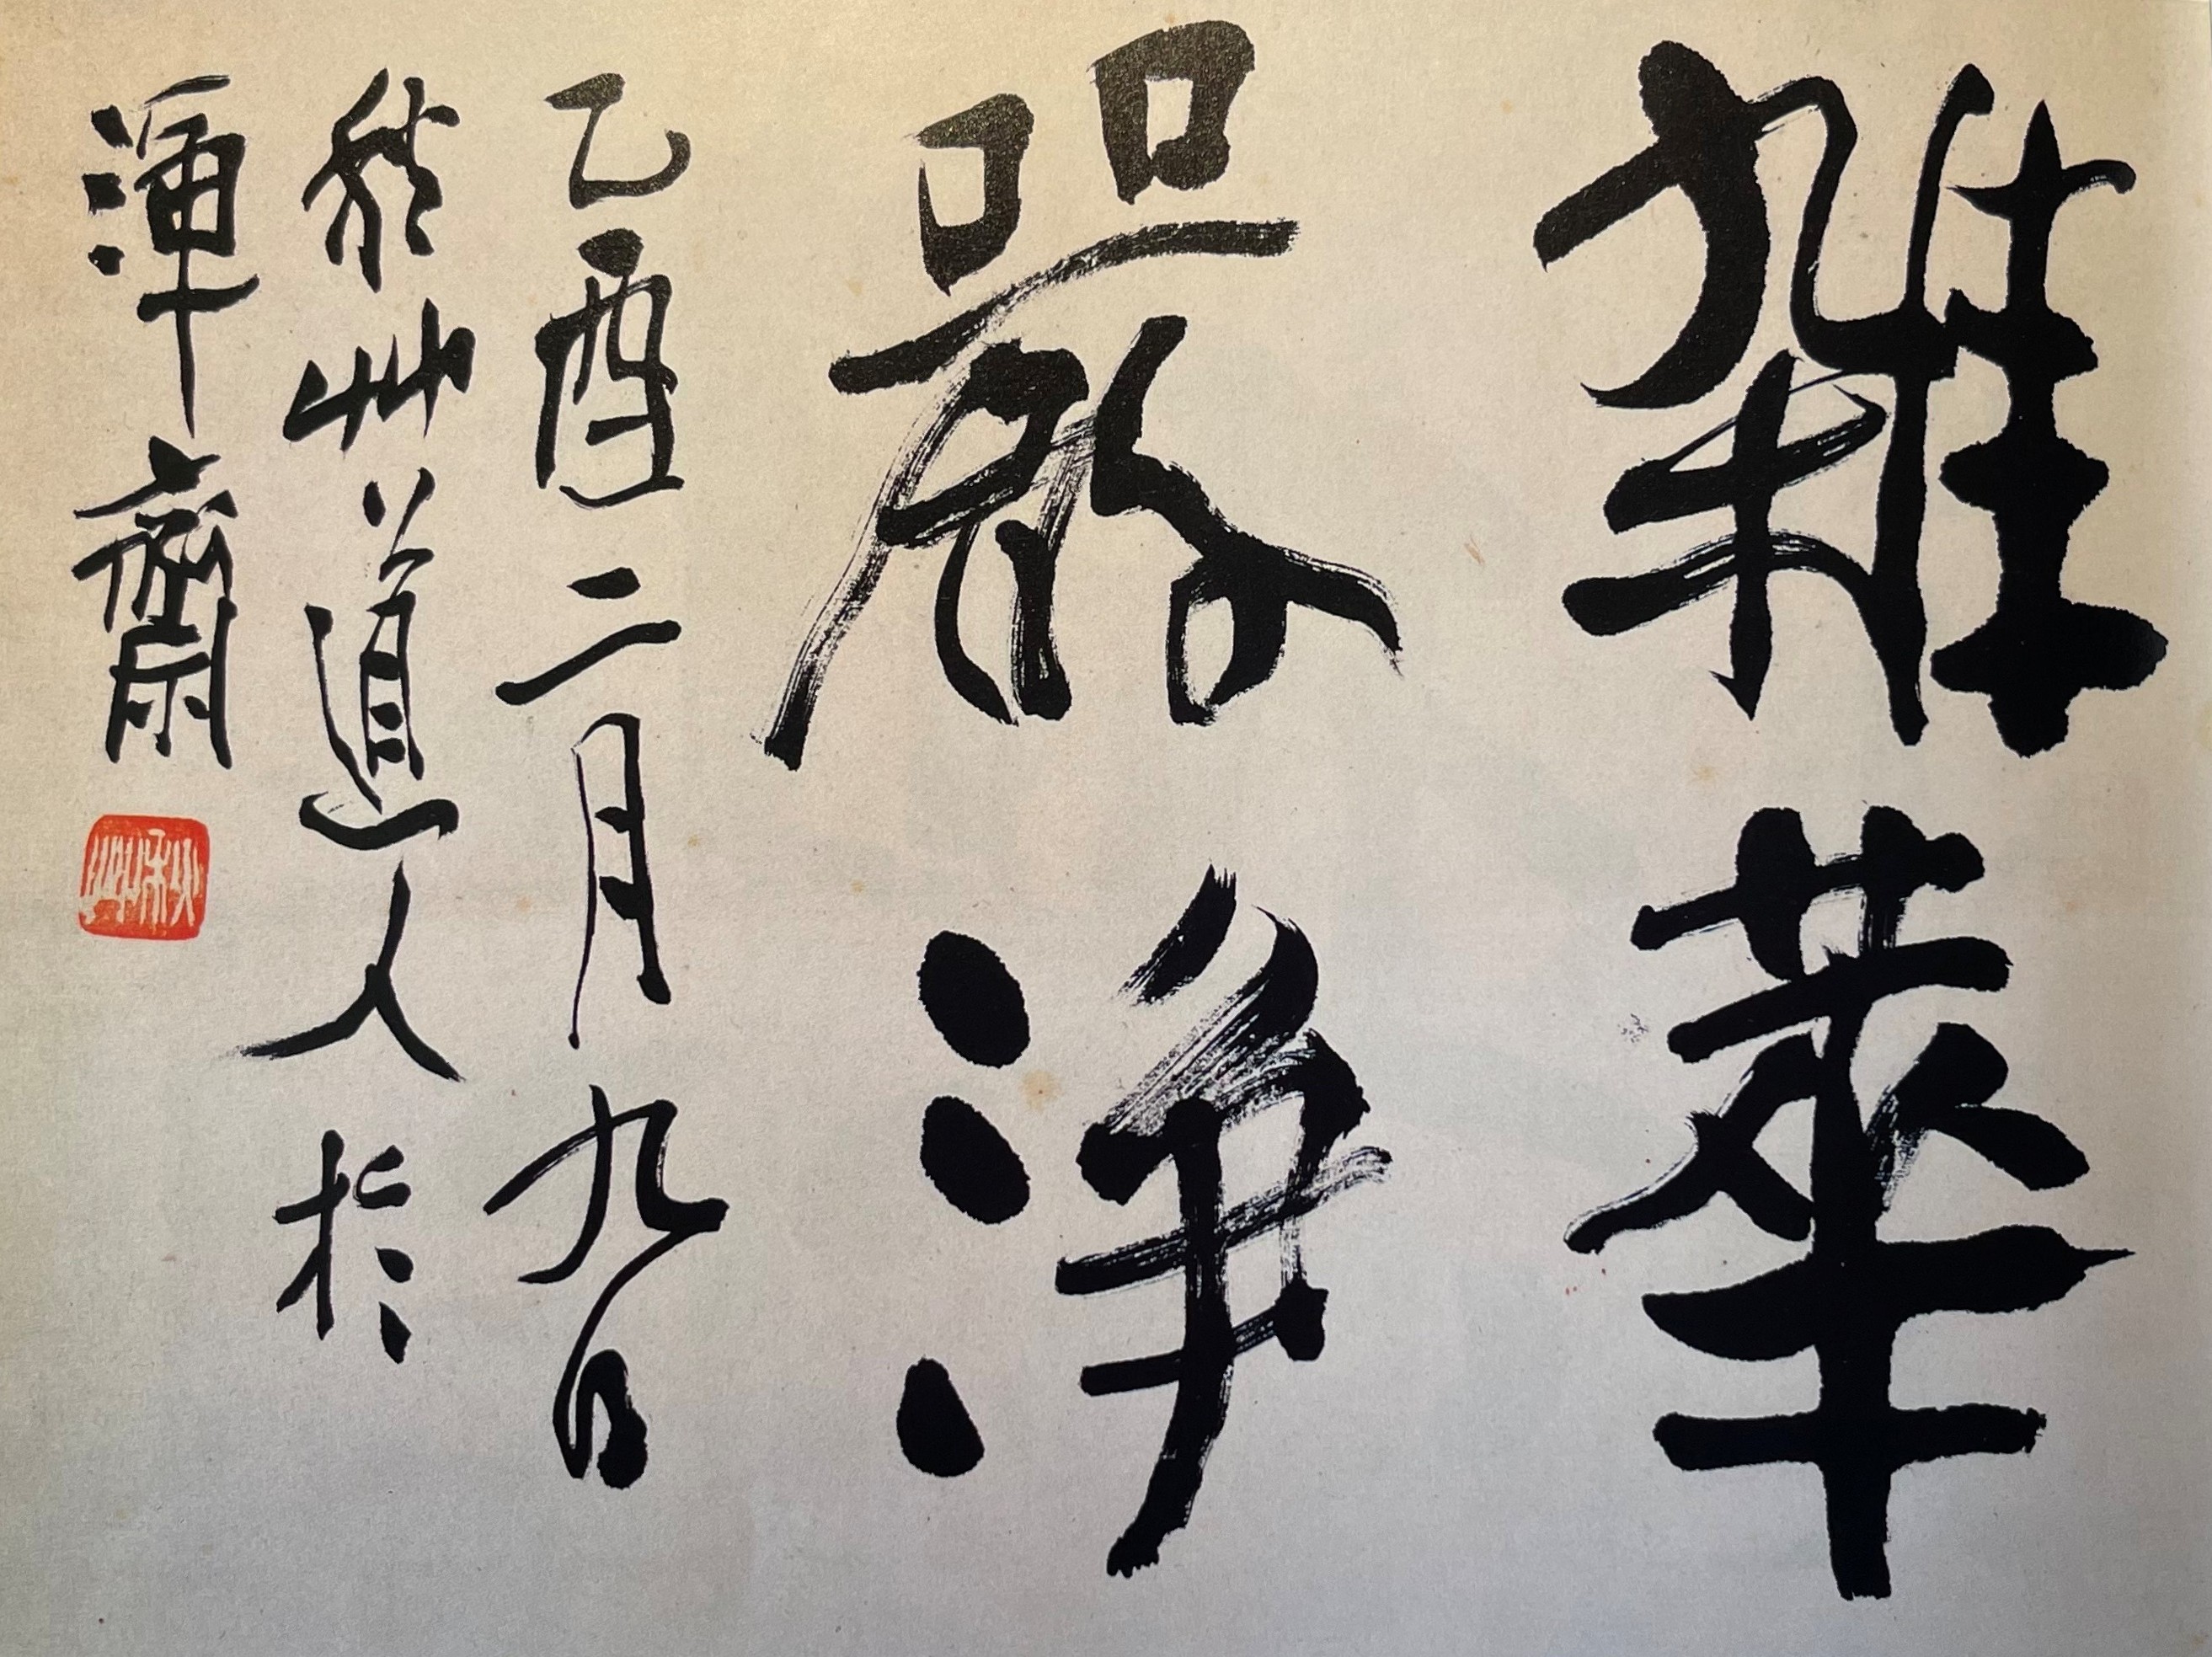 雜華
嚴淨
乙酉二月九日
秋艸道人於
渾齋
秋艸